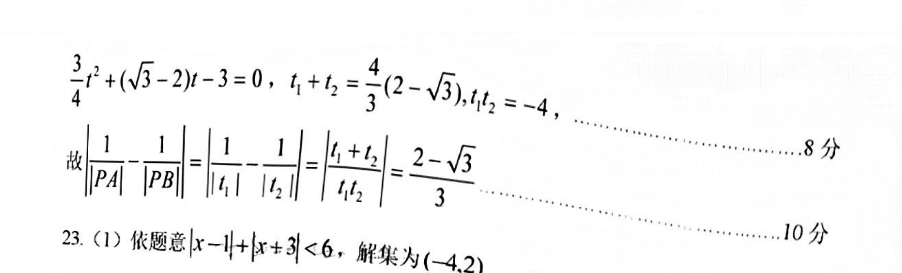 $\frac{3}{4}t^2+(\sqrt{3}-2)t-3=0$，$t_1+t_2=\frac{4}{3}(2-\sqrt{3}),t_1t_2=-4$，……………………8 分
故$\left|\frac{1}{|PA|}-\frac{1}{|PB|}\right|=\left|\frac{1}{|t_1|}-\frac{1}{|t_2|}\right|=\left|\frac{t_1+t_2}{t_1t_2}\right|=\frac{2-\sqrt{3}}{3}$……………………10 分
23.（1）依题意$|x-1|+|x+3|<6$，解集为$(-4,2)$